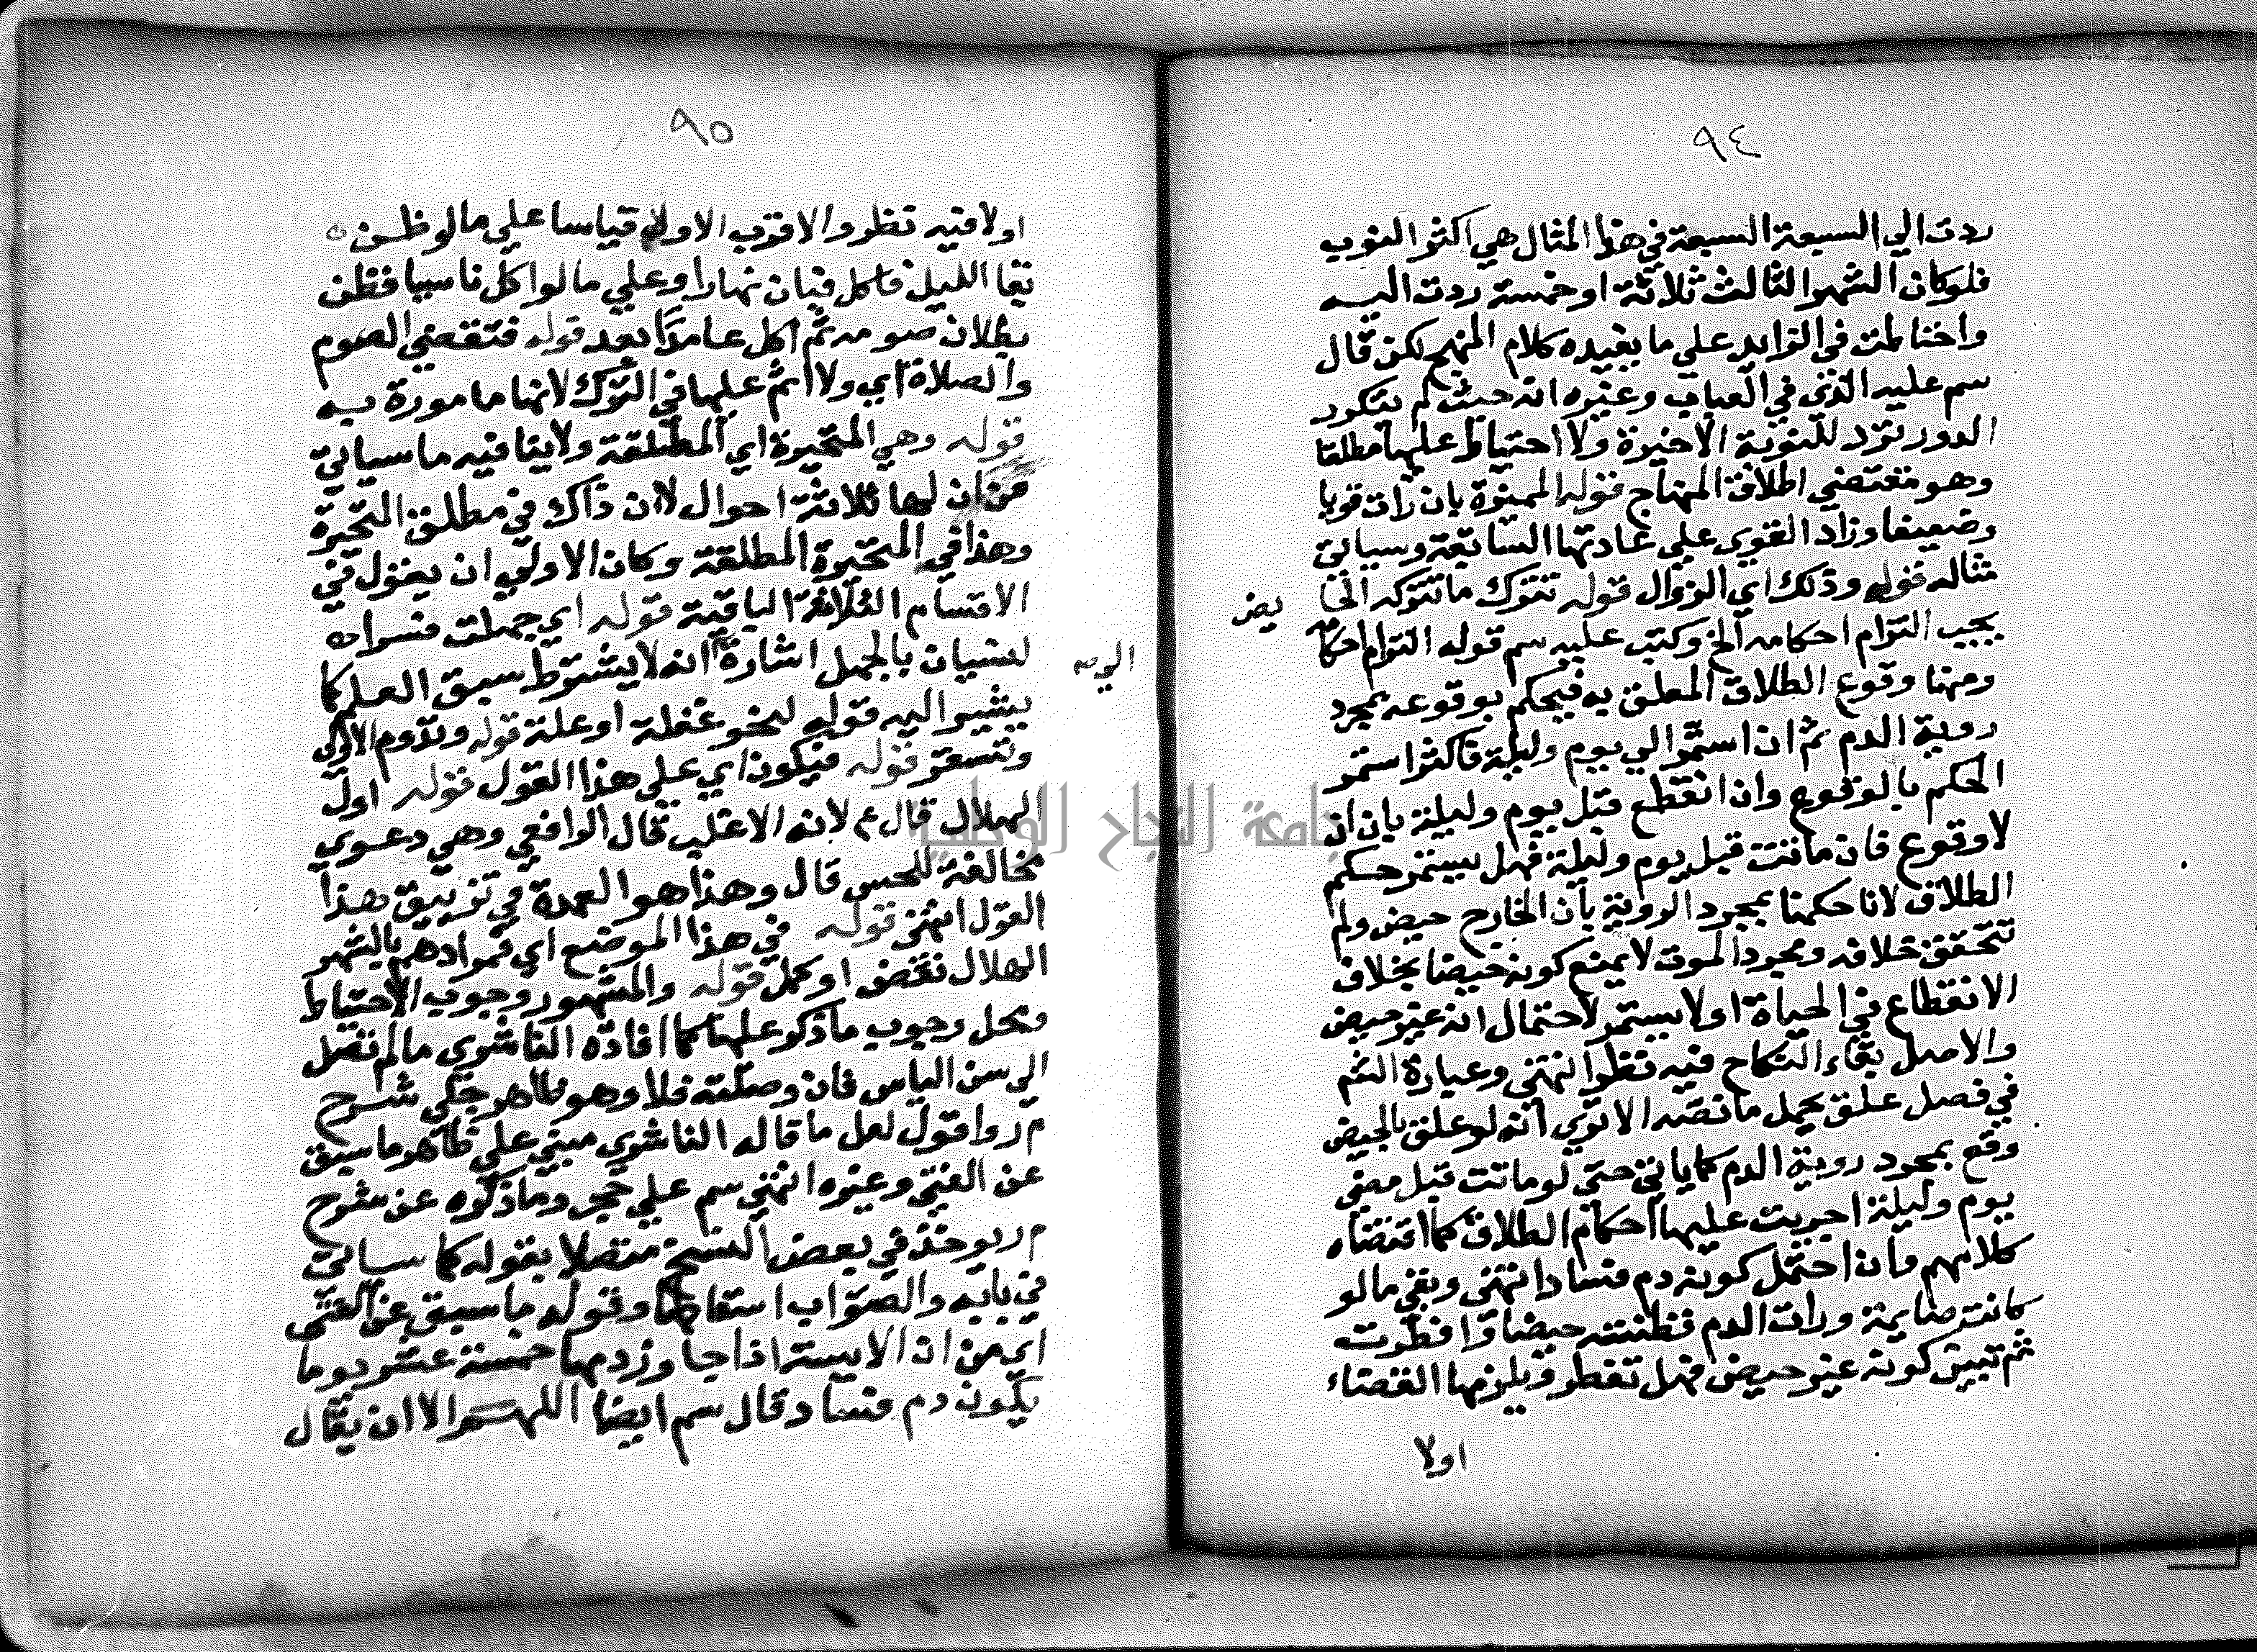 ٩٤
ردت الي السبعة السبعة في هذا المثال هي اكثر النوب
فلو كان الشهر الثالث ثلاثة او خمسة ردت اليـــه
واحتاطت في الزايد علي ما يفيده كلام المنهج لكن قال
سم عليه الذي في العباب وغيره انه حيث لم يتكرر
الدور ترد للنوبة الاخيرة ولا احتياط عليها مطلقا
وهو مقتضي اطلاق المنهاج قوله المميزة بان رات قويا
وضعيفا وزاد القوي علي عادتها السابقة وسياتي
مثاله قوله وذلك اي الزوال قوله تترك ما تتركه الحا
يض
يجب التزام احكامه الخ وكتب عليه سم قوله التزام احكامه
ومنها وقوع الطلاق المعلق به فيحكم بوقوعه بمجرد
روية الدم ثم ان استمر الي يوم وليلة فاكثر استمر
الحكم بالوقوع وان انقطع قبل يوم وليلة بان ان
لا وقوع فان ماتت قبل يوم وليلة فهل يستمر حكم
الطلاق لانا حكمنا بمجرد الروية بان الخارج حيض ولم
تتحقق خلافه ومجرد الموت لا يمنع كونه حيضا بخلاف
الانقطاع في الحياة او لا يستمر لاحتمال انه غير حيض
والاصل بقاء النكاح فيه نظر انتهي وعبارة الشم
في فصل علق بحمل ما نصه الا تري انه لو علق بالحيض
وقع بمجرد روية الدم كما ياتي حتي لو ماتت قبل مضي
يوم وليلة اجريت عليها احكام الطلاق كما اقتضاه
كلامهم وان احتمل كونه دم فساد انتهي وبقي ما لو
كانت صايمة ورات الدم فظنته حيضا وافطرت
ثم تبين كونه غير حيض فهل تفطر ويلزمها القضاء
اولا
٩٥
اولا فيه نظر والاقرب الاول قياسا علي ما لو ظـن
بقا الليل فاكل فبان نهارا وعلي ما لو اكل ناسيا فظن
بطلان صومه ثم اكل عامدا بعد قوله فتقضي الصوم
والصلاة اي ولا اثم عليها في الترك لانها مامورة بـه
قوله وهي المتحيرة اي المطلقة ولا ينافيه ما سياتي
من ان لها ثلاثة احوال لان ذاك في مطلق المتحيرة
وهذا في المتحيرة المطلقة وكان الاولي ان يقول في
الاقسام الثلاثة الباقية قوله اي جهلت فسر انه
النسيان بالجهل اشارة الي انه لا يشترط سبق العلم كما
يشير اليه قوله لنحو غفلة او علة قوله وتدوم الاولي
وتستمر قوله فيكون اي علي هذا القول قوله اول
الهلال قال ع لانه الاغلب قال الرافعي وهي دعوي
مخالفة للحس قال وهذا هو العمدة في تزييف هذا
القول انتهي قوله في هذا الموضع اي فمرادهم بالشهر
الهلال نقص او كمل قوله والمشهور وجوب الاحتياط
ومحل وجوب ما ذكر عليها كما افاده الناشري ما لم تصل
الي سن الياس فان وصلته فلا وهو ظاهر جلي شـرح
م ر واقول لعل ما قاله الناشري مبني علي ظاهر ما سبق
عن الفتي وغيره انتهي سم علي حجر وما ذكره عن شرح
م ر يوخذ في بعض النسخ متصلا بقوله كما سـياتي
في بابه والصواب اسقاطها وقوله ما سبق عن الفتي
اي من ان الايسة اذا جاوز دمها خمسة عشر يوما
يكون دم فساد وقال سم ايضا اللهـم الا ان يقال
جامعة النجاح الوطنية